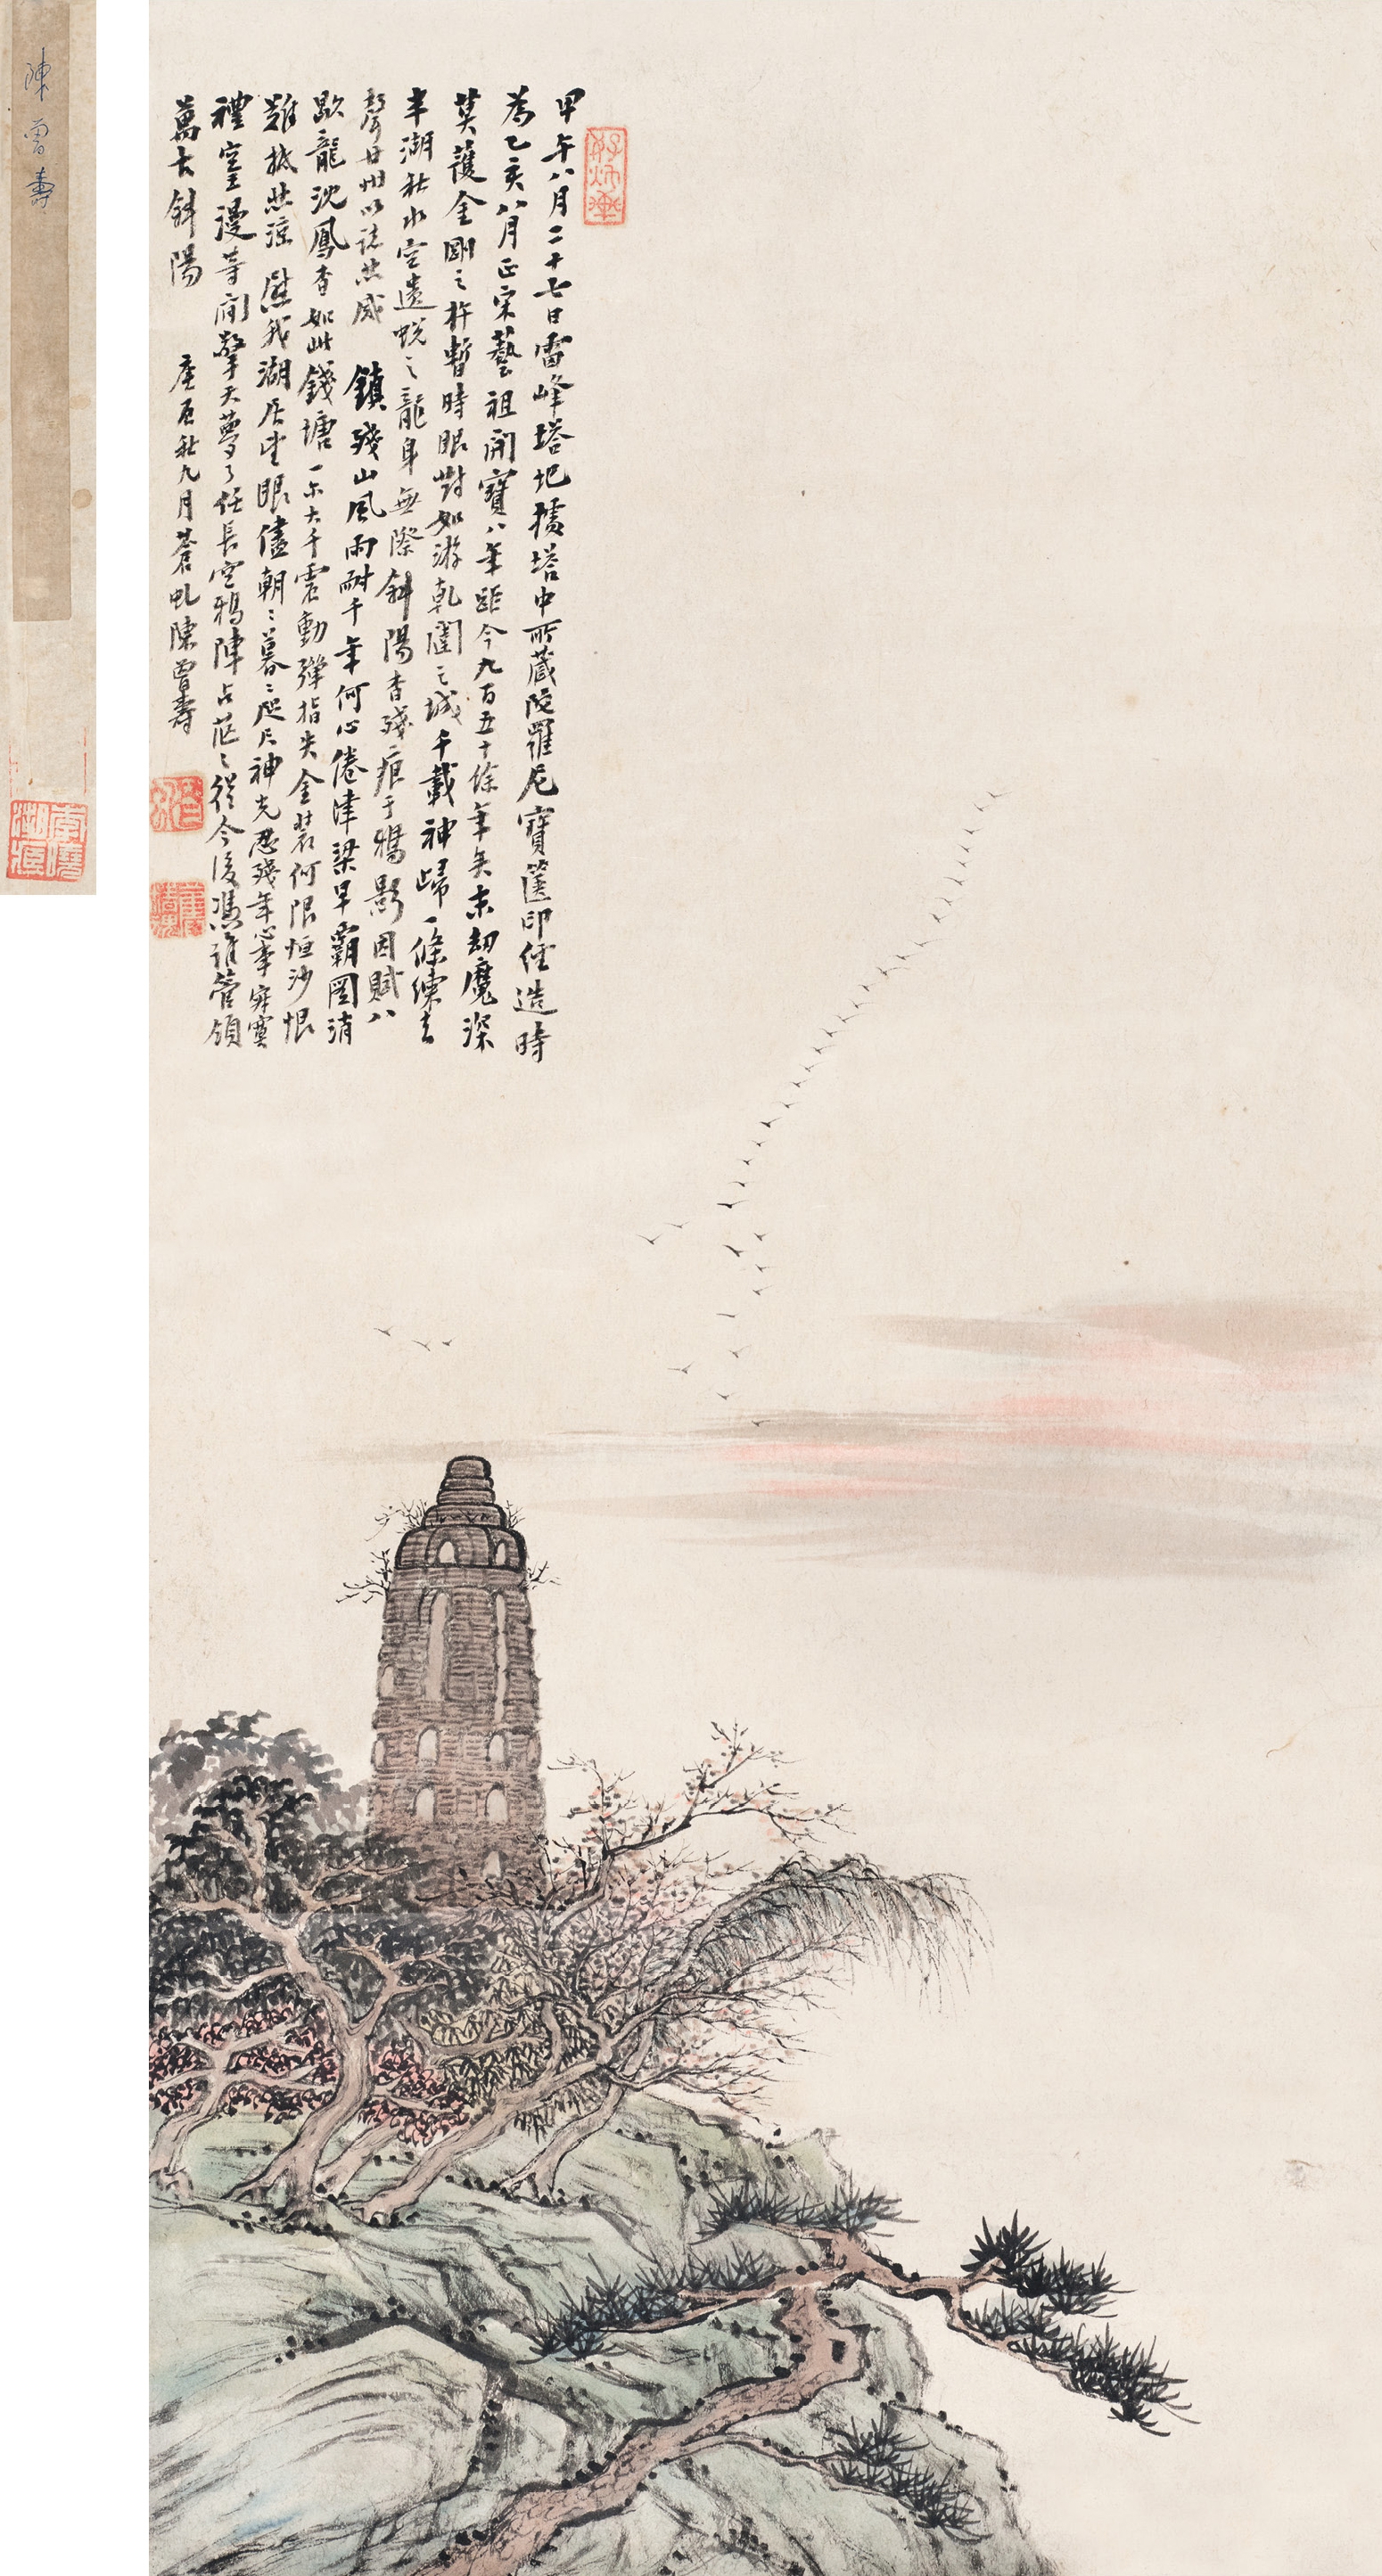 甲午八月二十七日雷峰塔圮據塔中所藏陀羅尼寶篋印經造時
為乙亥八月正宋藝祖開寶八年距今九百五十餘年矣末劫魔深
莫護金剛之杵暫時眼對如游乾闥之城千載神歸一條練去
半湖秋水空遺蛻之龍身無際斜陽杳殘痕于鴉影因賦八
聲甘州以誌悲感 鎮殘山風雨耐千年何心倦津梁早霸圖消
歇龍沈鳳杳如此錢塘一尔大千震動彈指失金裝何限恒沙恨
難抵悲涼 慰我湖居望眼儘朝〻暮〻咫尺神光忍殘年心事寂寞
禮空王漫等閒擎天夢了任長空鴉陣占茫〻從今後憑誰管領
萬古斜陽 庚辰秋九月蒼虬陳曾壽
陳曾壽